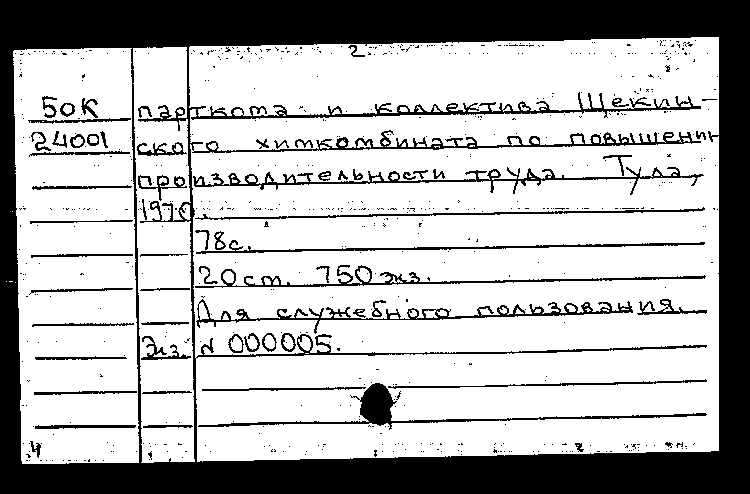 2
50К парткома и коллектива Щекин-
24001 ского химкомбината по повышени
производительности труда. Тула,
1970.
78с.
20 ст. 750 экз.
Для служебного пользования.
Экз. N 000005.
4